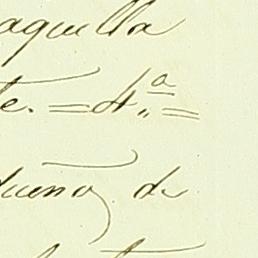 aquella
te. = 4.ª =
dueño, de